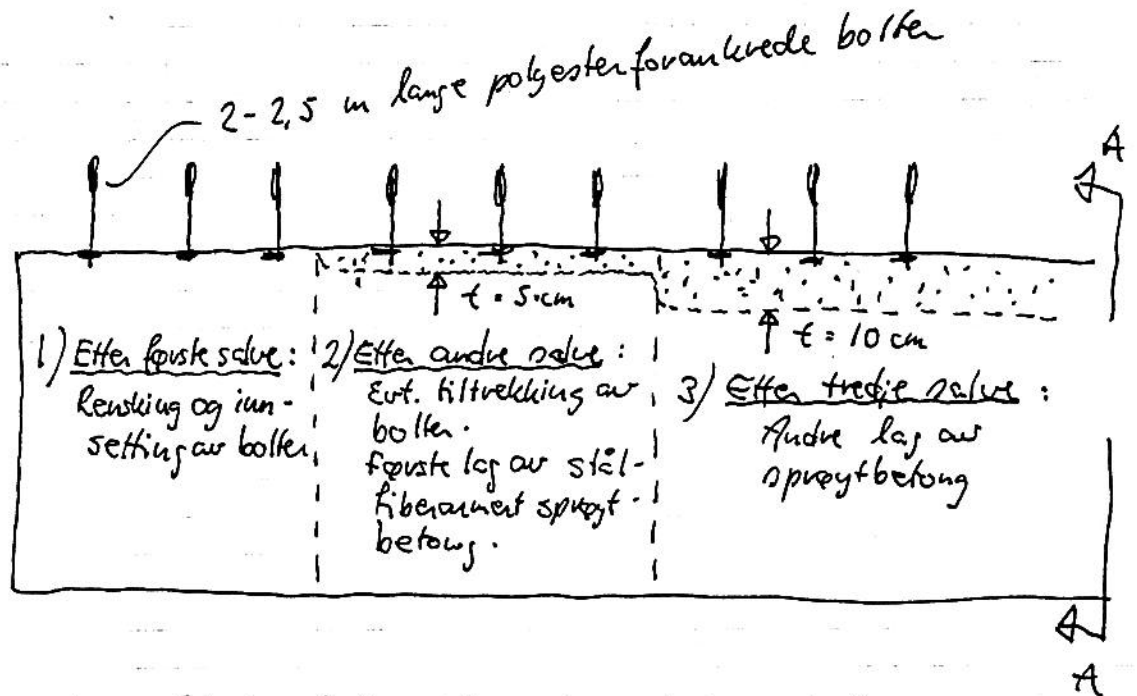 2-2,5 m lange polyesterforankrede bolter
A
t = 5 cm
t = 10 cm
1) Etter første salve:
Rensking og inn-
setting av bolter
2) Etter andre salve:
Evt. tiltrekking av
bolter.
Første lag av stål-
fiberarmert sprøyt-
betong.
3) Etter tredje salve:
Andre lag av
sprøytbetong
A